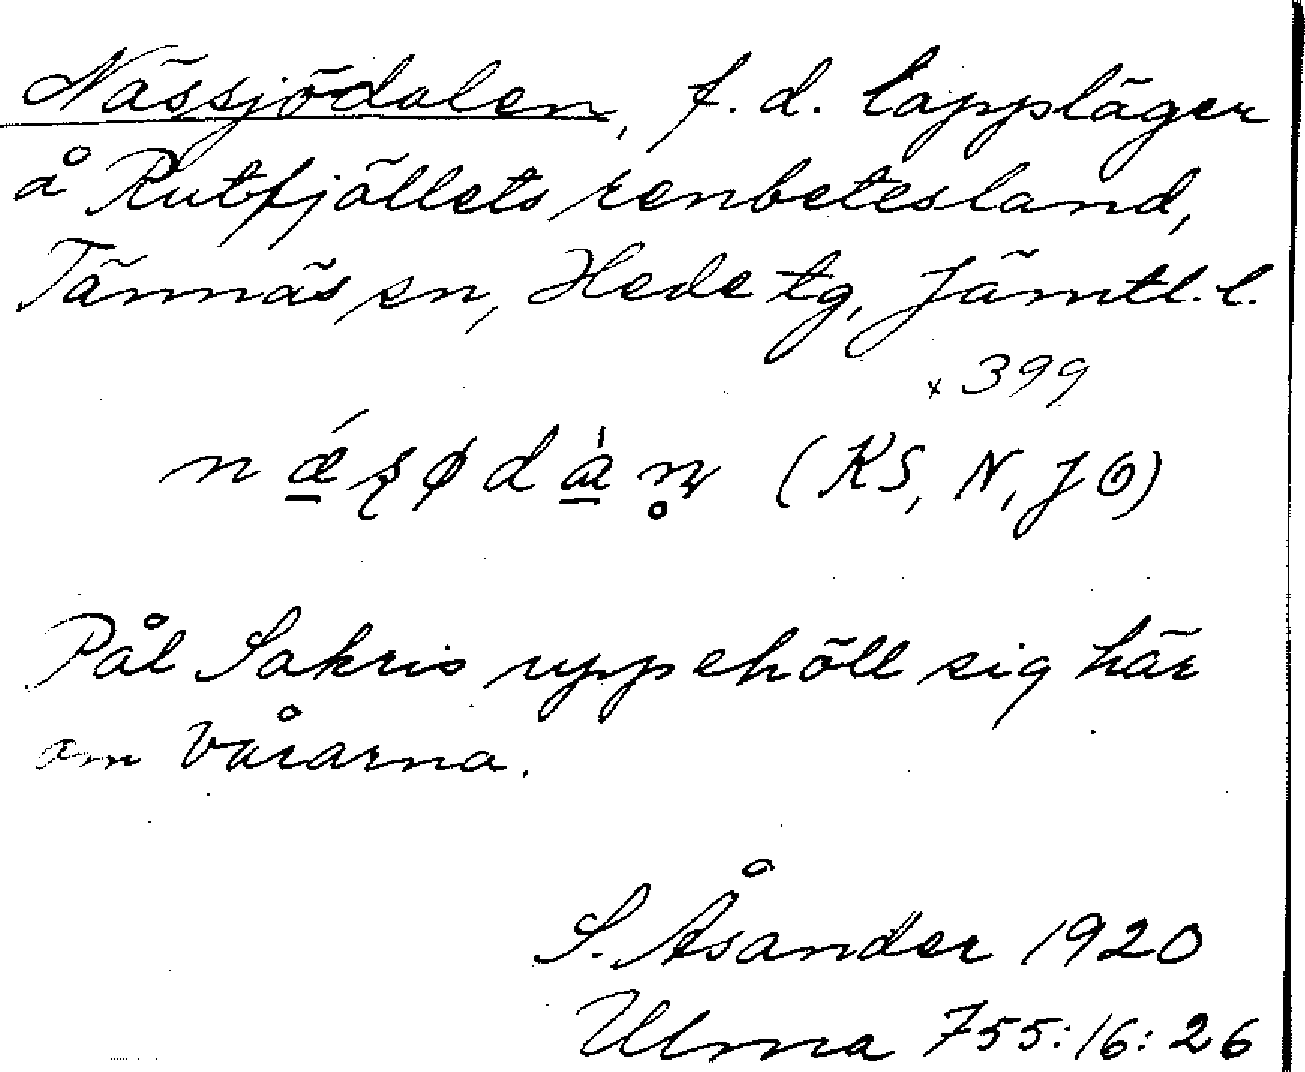 Nässjödalen, f.d. lappläger
å Rutfjällets renbetesland,
Tännäs sn, Hede tg, Jämtl. l.
x 399
(KS, N, JÖ)
Pål Sakris uppehöll sig här
om vårarna.
S. Åsander 1920
Ulma 755:16:26